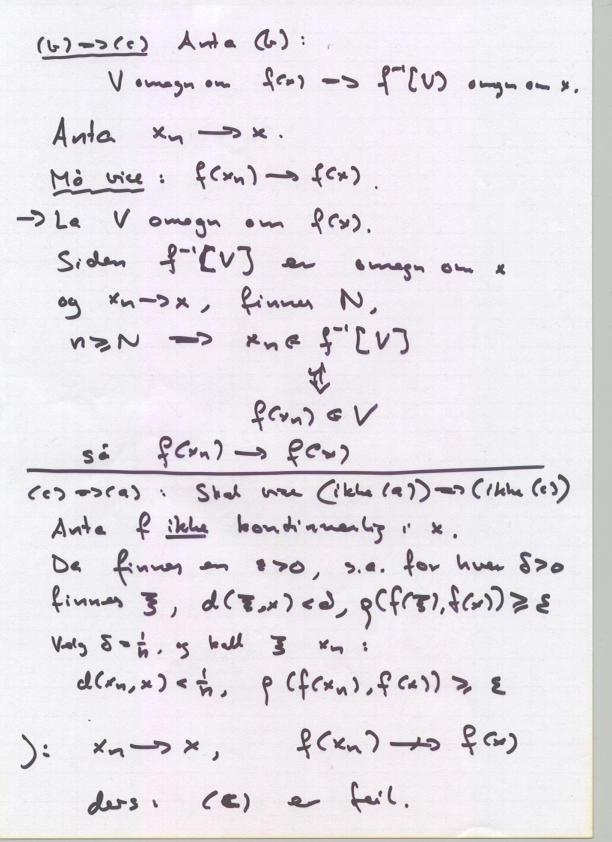 (b) => (c) Anta (b):
V omegn om f(x) → f⁻¹[V] omegn om x.
Anta xₙ → x.
Må vise: f(xₙ) → f(x).
→ La V omegn om f(x).
Siden f⁻¹[V] er omegn om x
og xₙ → x, finnes N,
n ≥ N → xₙ ∈ f⁻¹[V]
⇕
f(xₙ) ∈ V
så f(xₙ) → f(x)
(c) => (a): Skal vise (ikke (a)) => (ikke (c))
Anta f ikke kontinuerlig i x.
Da finnes en ε>0, s.a. for hver δ>0
finnes ξ, d(ξ,x)<δ, ρ(f(ξ),f(x)) ≥ ε
Velg δ = 1/n, og kall ξ xₙ:
d(xₙ,x) < 1/n, ρ(f(xₙ), f(x)) ≥ ε
): xₙ → x, f(xₙ) ↛ f(x)
dvs: (c) er feil.